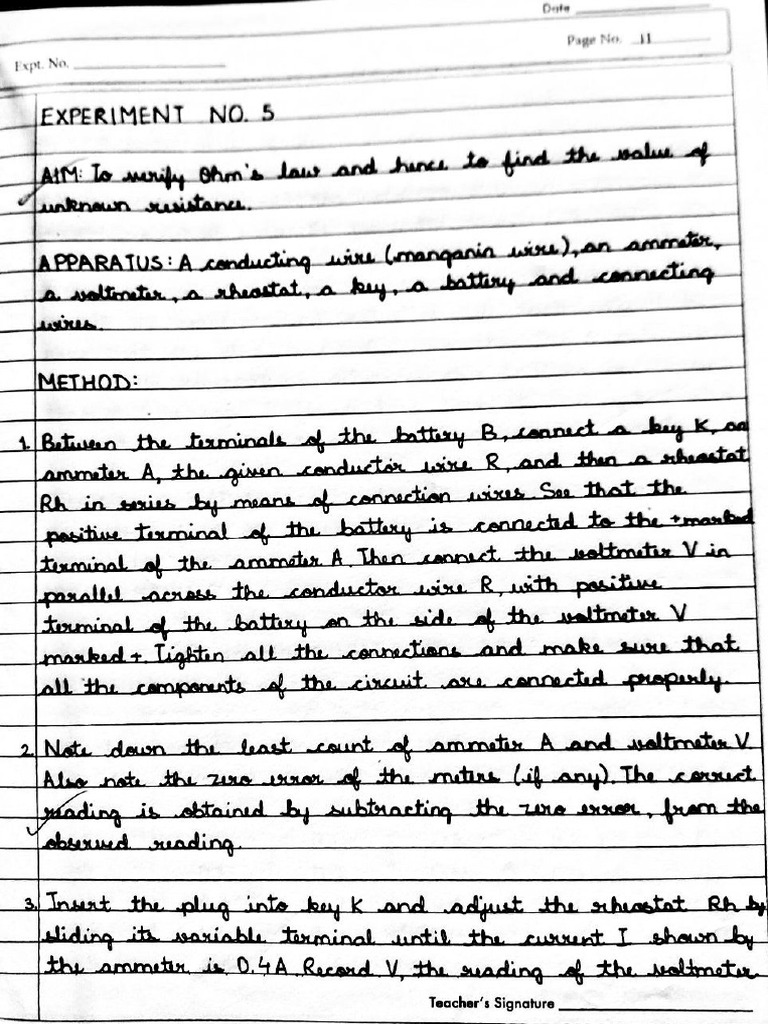 Date
Page No. 11
Expt. No.
EXPERIMENT NO. 5
AIM: To verify Ohm's law and hence to find the value of
unknown resistance.
APPARATUS: A conducting wire (manganin wire), an ammeter,
a voltmeter, a rheostat, a key, a battery and connecting
wires.
METHOD:
1. Between the terminals of the battery B, connect a key K, an
ammeter A, the given conductor wire R, and then a rheostat
Rh in series by means of connection wires. See that the
positive terminal of the battery is connected to the + marked
terminal of the ammeter A. Then connect the voltmeter V in
parallel across the conductor wire R, with positive
terminal of the battery on the side of the voltmeter V
marked +. Tighten all the connections and make sure that
all the components of the circuit are connected properly.
2. Note down the least count of ammeter A and voltmeter V
Also note the zero error of the meters (if any). The correct
reading is obtained by subtracting the zero error, from the
observed reading.
3. Insert the plug into key K and adjust the rheostat Rh by
sliding its variable terminal until the current I shown by
the ammeter is 0.4A. Record V, the reading of the voltmeter.
Teacher's Signature